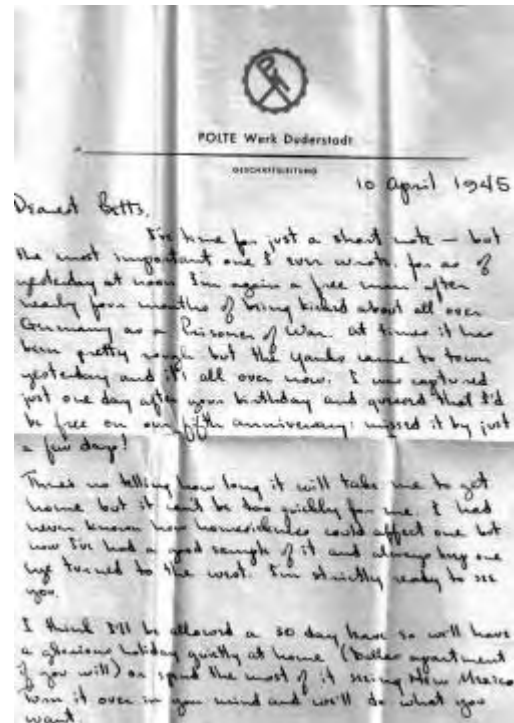 POLTE Werk Duderstadt
GESCHÄFTSLEITUNG
10 April 1945
Dearest Betts,
I've time for just a short note — but
the most important one I ever wrote, for as of
yesterday at noon I'm again a free man after
nearly four months of being kicked about all over
Germany as a Prisoner of War. At times it has
been pretty rough but the Yanks came to town
yesterday and it's all over now. I was captured
just one day after your birthday and guessed that I'd
be free on our fifth anniversary; missed it by just
a few days!
There's no telling how long it will take me to get
home but it can't be too quickly for me. I had
never known how homesickness could affect one but
now I've had a good sample of it and always keep one
eye turned to the west. I'm strictly ready to see
you.
I think I'll be allowed a 30 day leave so we'll have
a glorious holiday quietly at home ( apartment
if you will) or spend the most of it seeing New Mexico
Turn it over in your mind and we'll do what you
want.